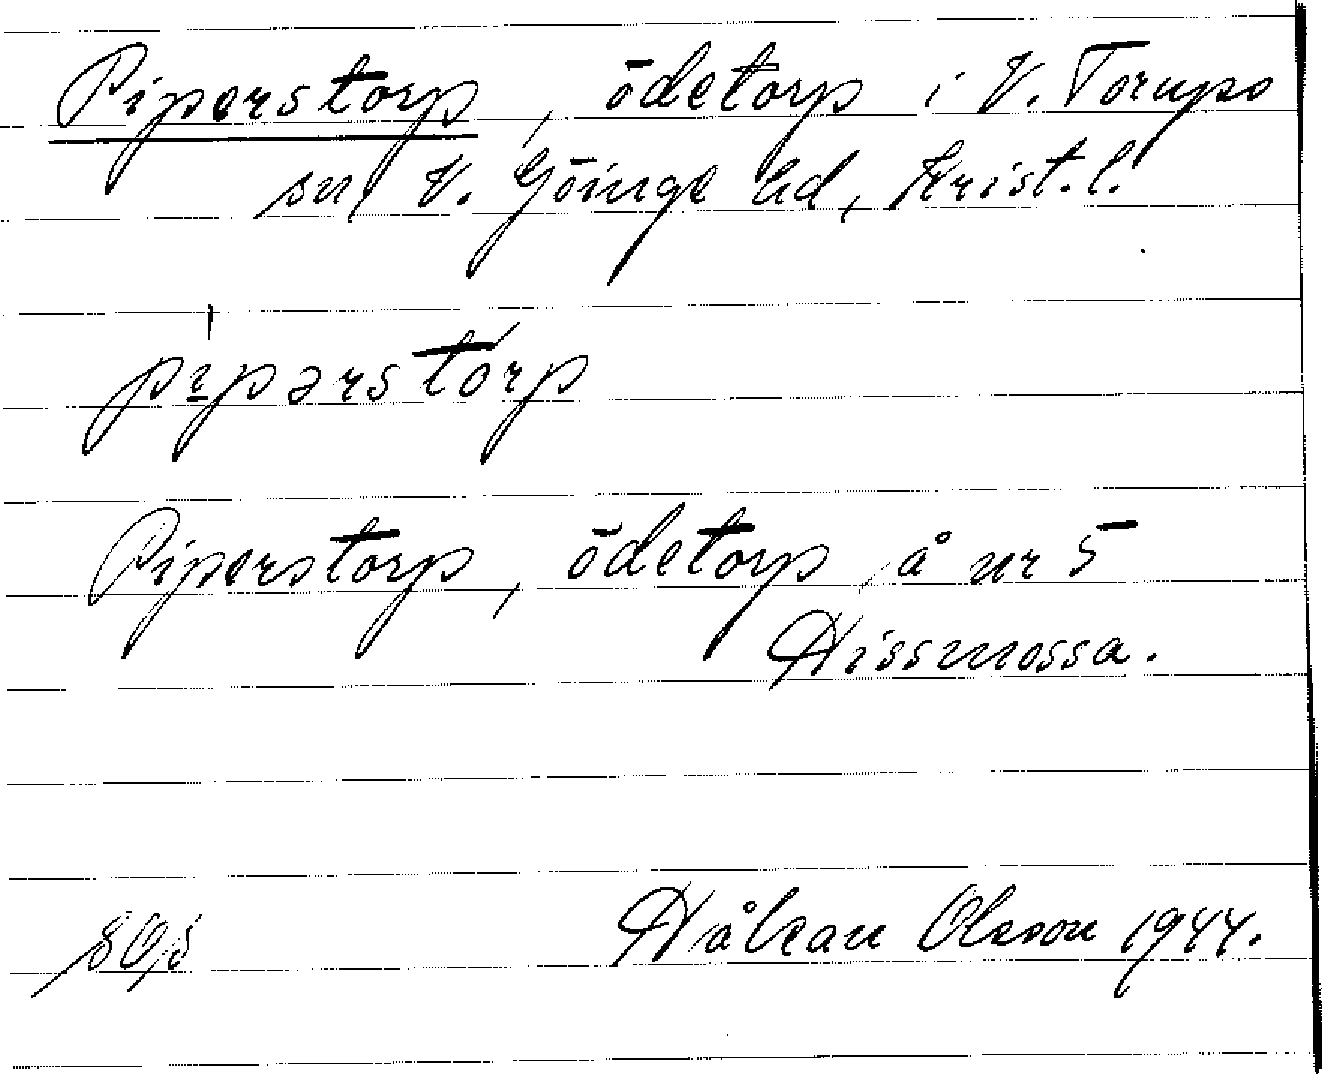 Piperstorp, ödetorp i V. Torups
sn, V. Göinge hd, Krist. l.
pipərstórp
Piperstorp, ödetorp, å nr 5
Hissmossa.
Håkan Olsson 1944.